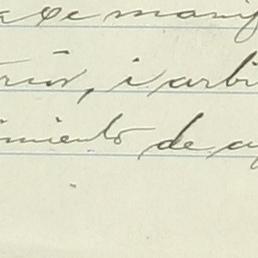 se manif
rior, i arbi
imiento de a